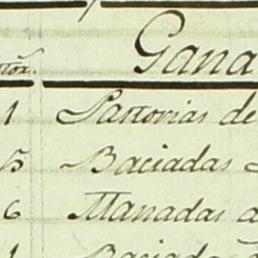 Gana
1 Pastorias de
5 Baciadas
6 Manadas d
1 Baciadas